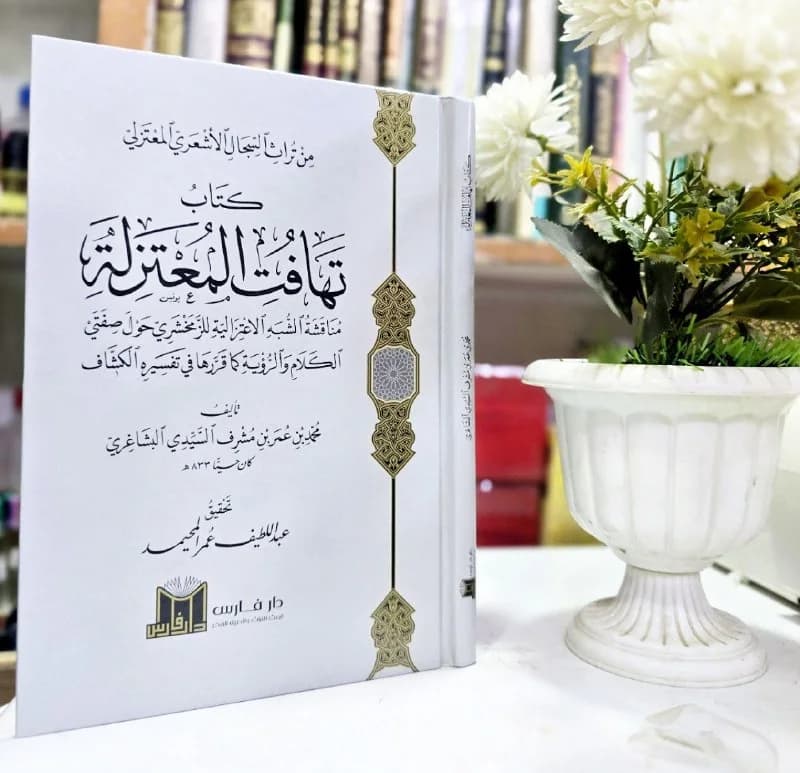 مِنْ تُرَاثِ السِّجَالِ الأَشْعَرِيِّ المُعْتَزِلِيِّ
كِتَابُ
تَهَافُتِ المُعْتَزِلَةِ
مُنَاقَشَةُ الشُّبَهِ الاعْتِزَالِيَّةِ لِلزَّمَخْشَرِيِّ حَوْلَ صِفَتَيِ
الكَلَامِ وَالرُّؤْيَةِ كَمَا قَرَّرَهَا فِي تَفْسِيرِهِ الكَشَّاف
تأليف
مُحَمَّد بْنِ عُمَر بْنِ مُشْرِف السَّيِّدِي البَشَاغِرِيِّ
كان حيًّا ٨٣٣ هـ
تحقيق
عبد اللطيف عُمر المحيمد
دار فارس
دار فارس